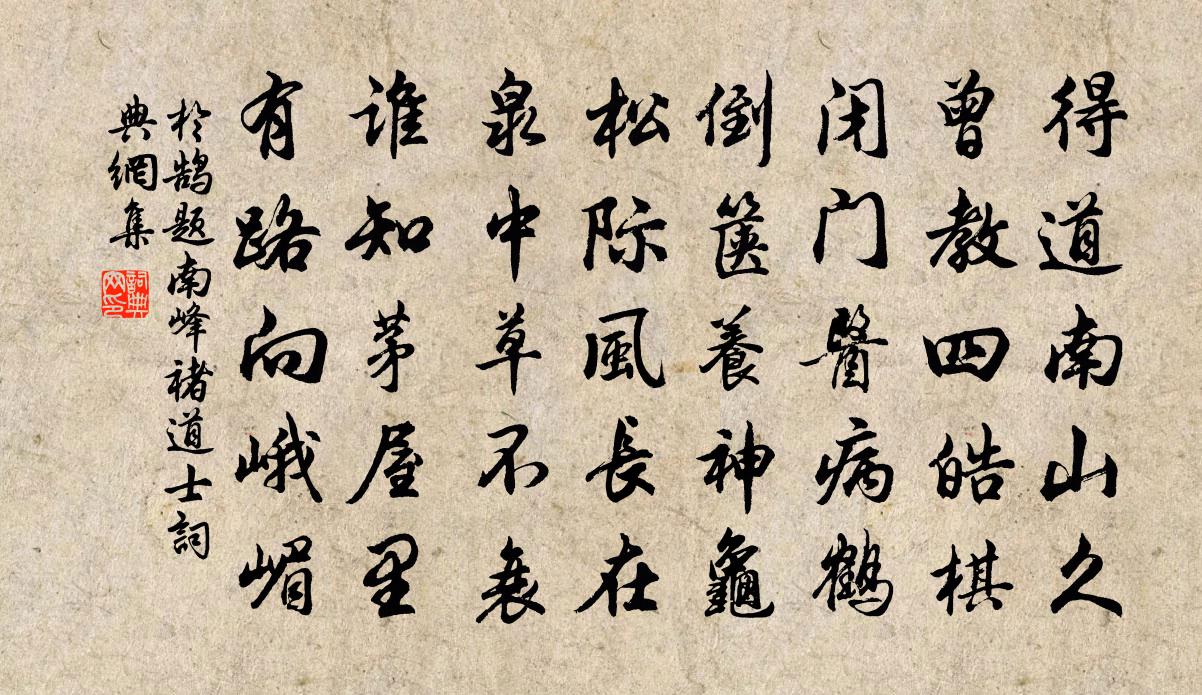 得道南山久
曾教四皓棋
闭门医病鹤
倒箧养神龜
松际風長在
泉中草不衰
谁知茅屋里
有路向峨嵋
於鹄题南峰褚道士詞
典網集
詞典
网印